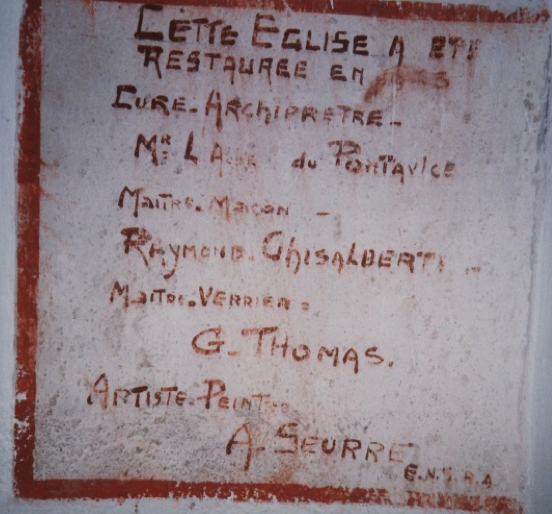 CETTE EGLISE A ETE
RESTAUREE EN
CURE-ARCHIPRETRE-
MR L'ABBE du PONTAVICE
MAITRE-MACON -
RAYMOND-GHISALBERTI-
MAITRE-VERRIER:
G-THOMAS.
ARTISTE-PEINTRE
A. SEURRE
E.N.S.B.A